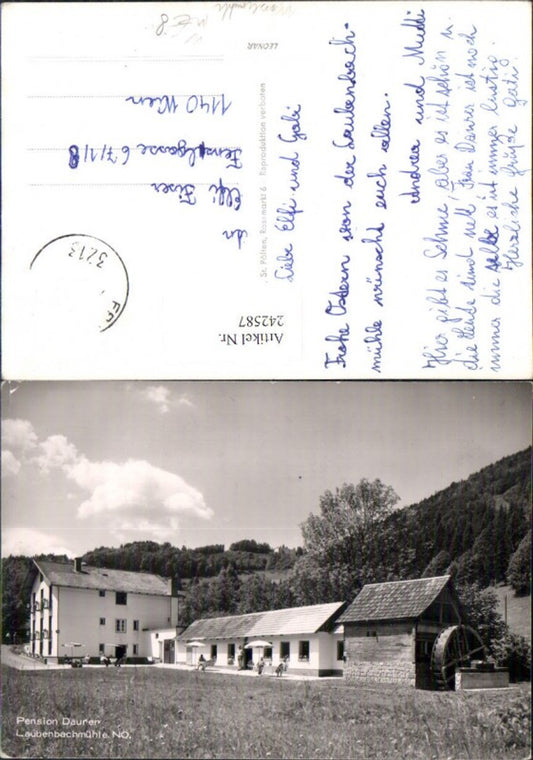 LEONAR
1140 Wien
67/1/8
Elfi
An
3213
St. Pölten, Rossmarkt 6 Reproduktion verboten
Artikel Nr.
242587
Liebe Elfi und Gabi
Frohe Ostern von der Laubenbach-
mühle wünscht euch allen.
Andrea und Mutti
Hier gibt es Schnee, aber es ist schön u.
die Leute sind nett, Frau Daurer ist noch
immer die selbe es ist immer lustig.
Herzliche Grüße Gabi
Pension Daurer
Laubenbachmühle, NÖ.